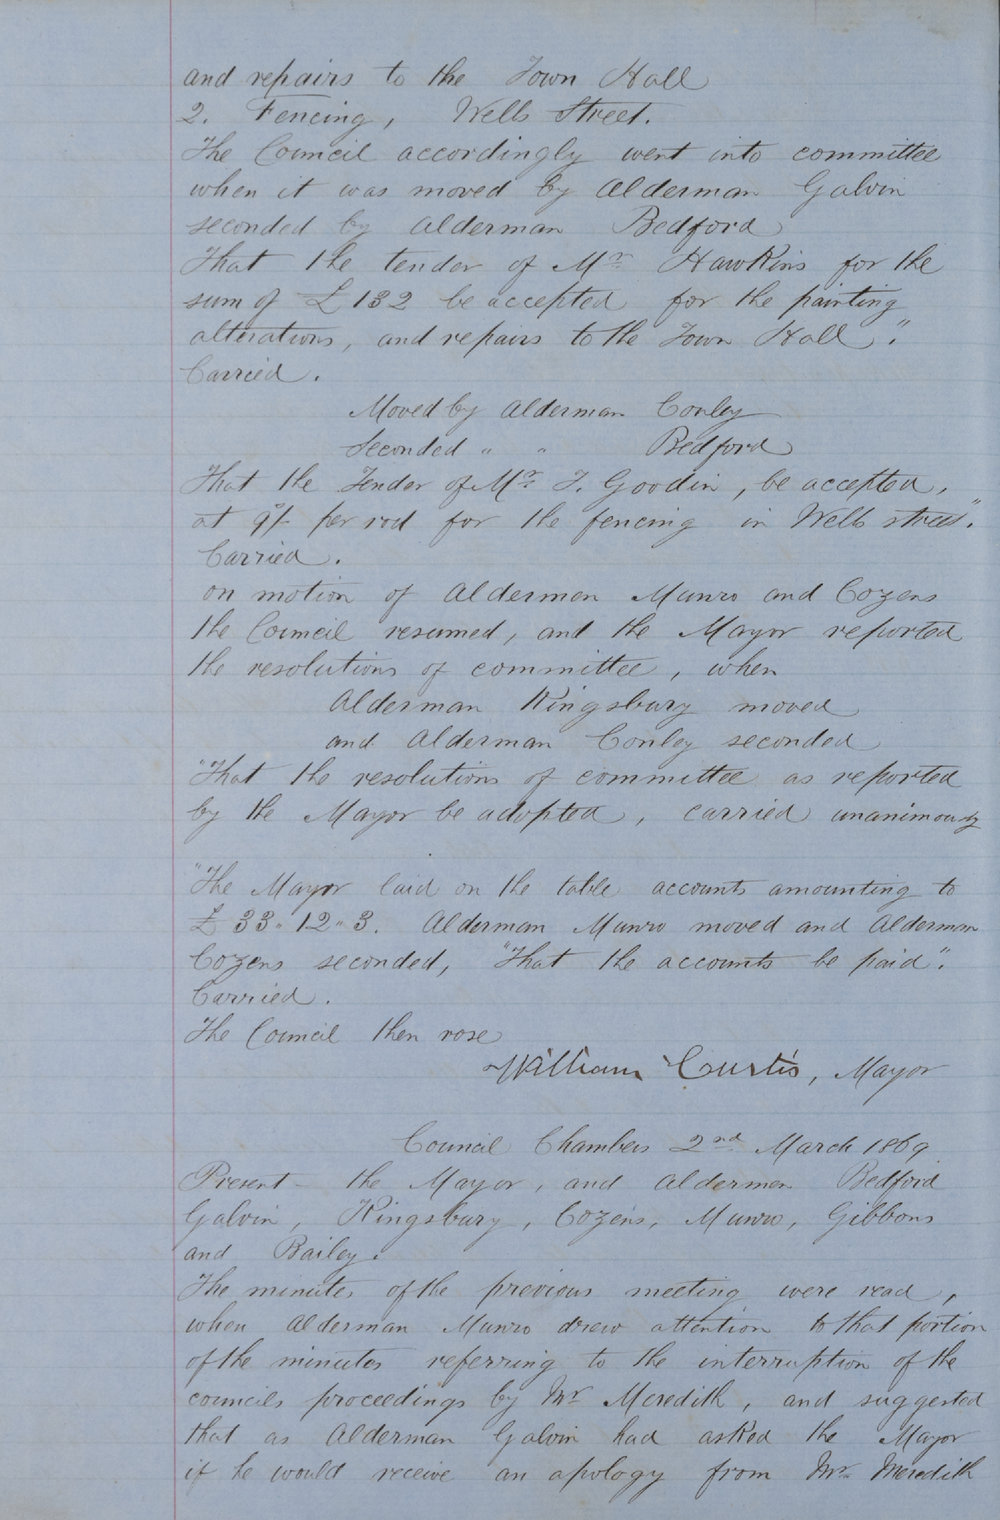 and repairs to the Town Hall
2. Fencing, Wells Street.
The Council accordingly went into committee
when it was moved by Alderman Galvin
seconded by Alderman Bedford
That the tender of Mr Hawkins for the
sum of £132 be accepted for the painting
alterations, and repairs to the Town Hall."
Carried.
Moved by Alderman Conley
Seconded " " Bedford
That the Tender of Mr T. Goodin, be accepted,
at 9/- per rod for the fencing in Wells street".
Carried.
on motion of Aldermen Munro and Cozens
the Council resumed, and the Mayor reported
the resolutions of committee, when
Alderman Kingsbury moved
and Alderman Conley seconded
"That the resolutions of committee as reported
by the Mayor be adopted, carried unanimously
"The Mayor laid on the table accounts amounting to
£33"12"3. Alderman Munro moved and Alderman
Cozens seconded, "That the accounts be paid".
Carried.
The Council then rose
William Curtis, Mayor
Council Chambers 2nd March 1869
Present - the Mayor, and Aldermen Bedford
Galvin, Kingsbury, Cozens, Munro, Gibbons
and Bailey.
The minutes of the previous meeting were read,
when Alderman Munro drew attention to that portion
of the minutes referring to the interruption of the
councils proceedings by Mr Meredith, and suggested
that as Alderman Galvin had asked the Mayor
if he would receive an apology from Mr Meredith